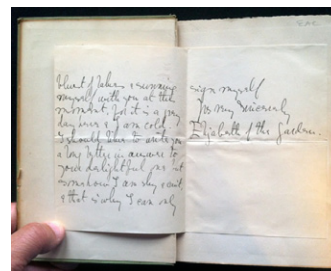 myself with you at this
moment, for it is a grey
day here & I am cold.
I should like to write you
a long letter in answer to
your delightful one but
somehow I am shy & can't,
& that is why I can only
sign myself
Yrs very sincerely
Elizabeth of the Garden.